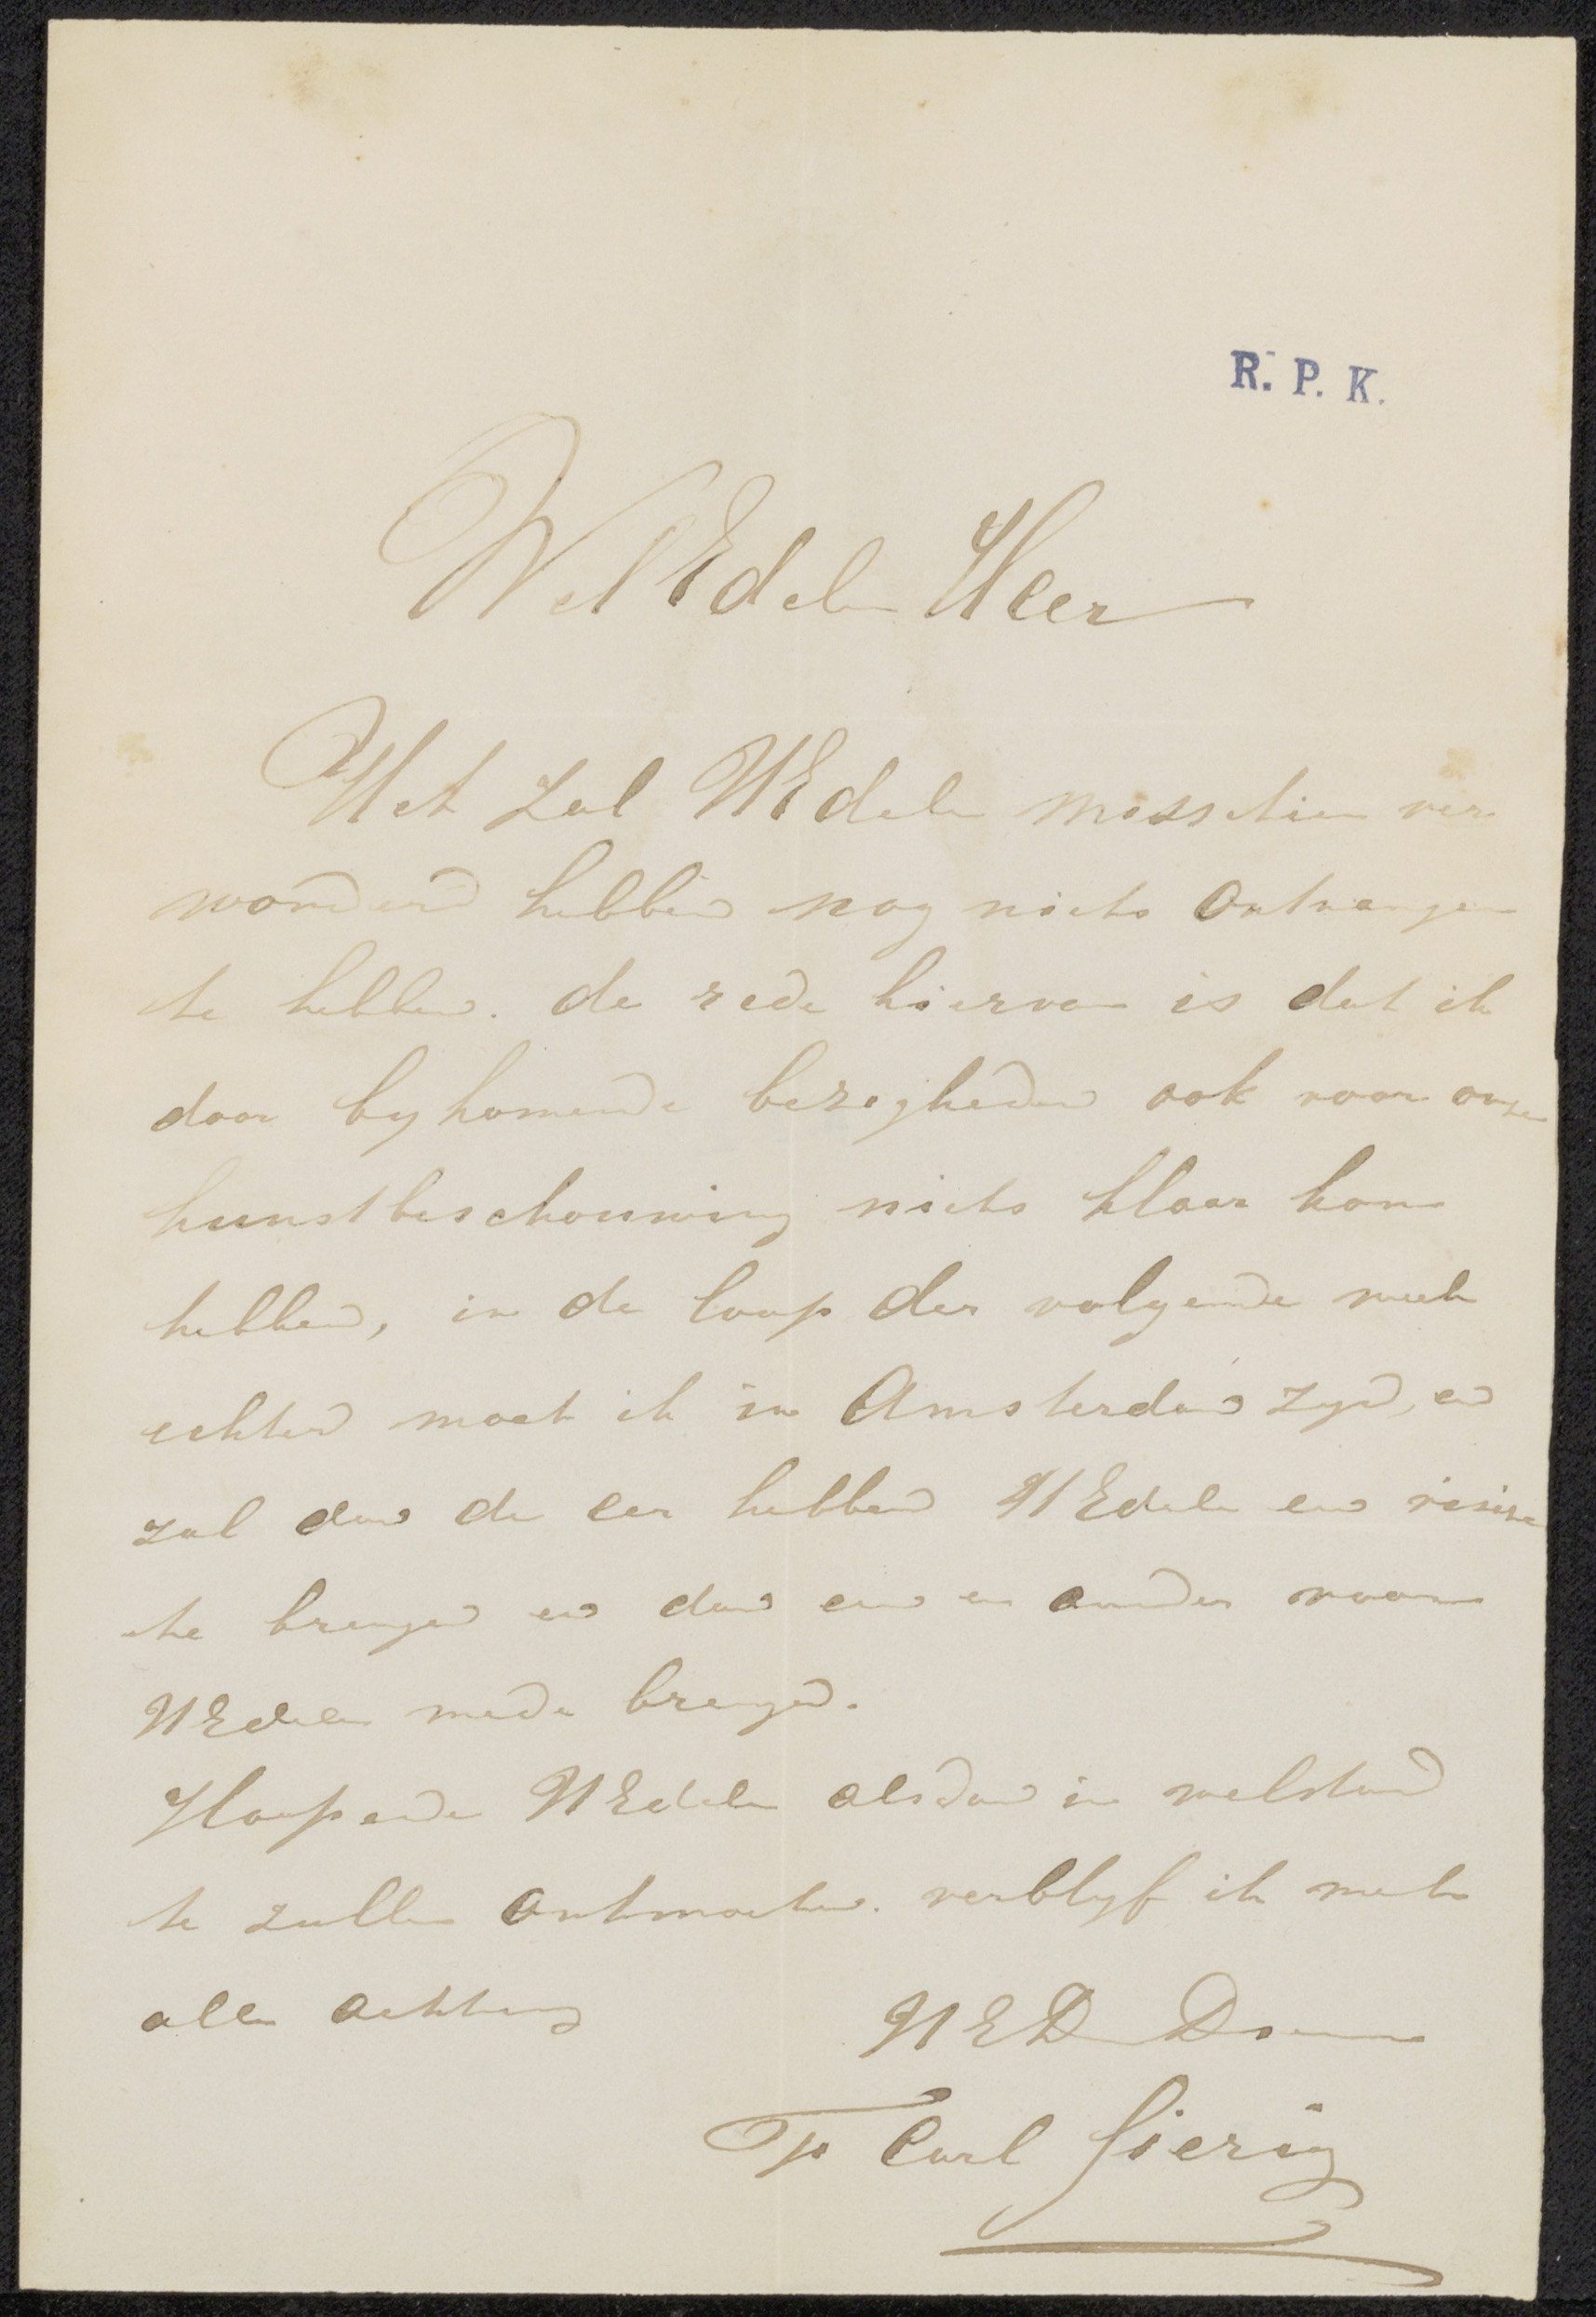 R. P. K.
WelEdele Heer
Het zal UEdele messchien ver
wonderd hebben nog niets ontvangen
te hebben. de rede hiervan is dat ik
door bykomende bezigheden ook voor onze
kunstbeschouwing niets klaar kon
hebben, in de loop der volgende week
echter moet ik in Amsterdam zyn, en
zal dan de eer hebben UEdele een visite
te brengen en dan een en ander voor
UEdele mede brengen.
Hoopende UEdele alsdan in welstand
te zullen ontmoeten. verblyf ik met
alle achting
UEDn Dienaar
F Carl Sierig